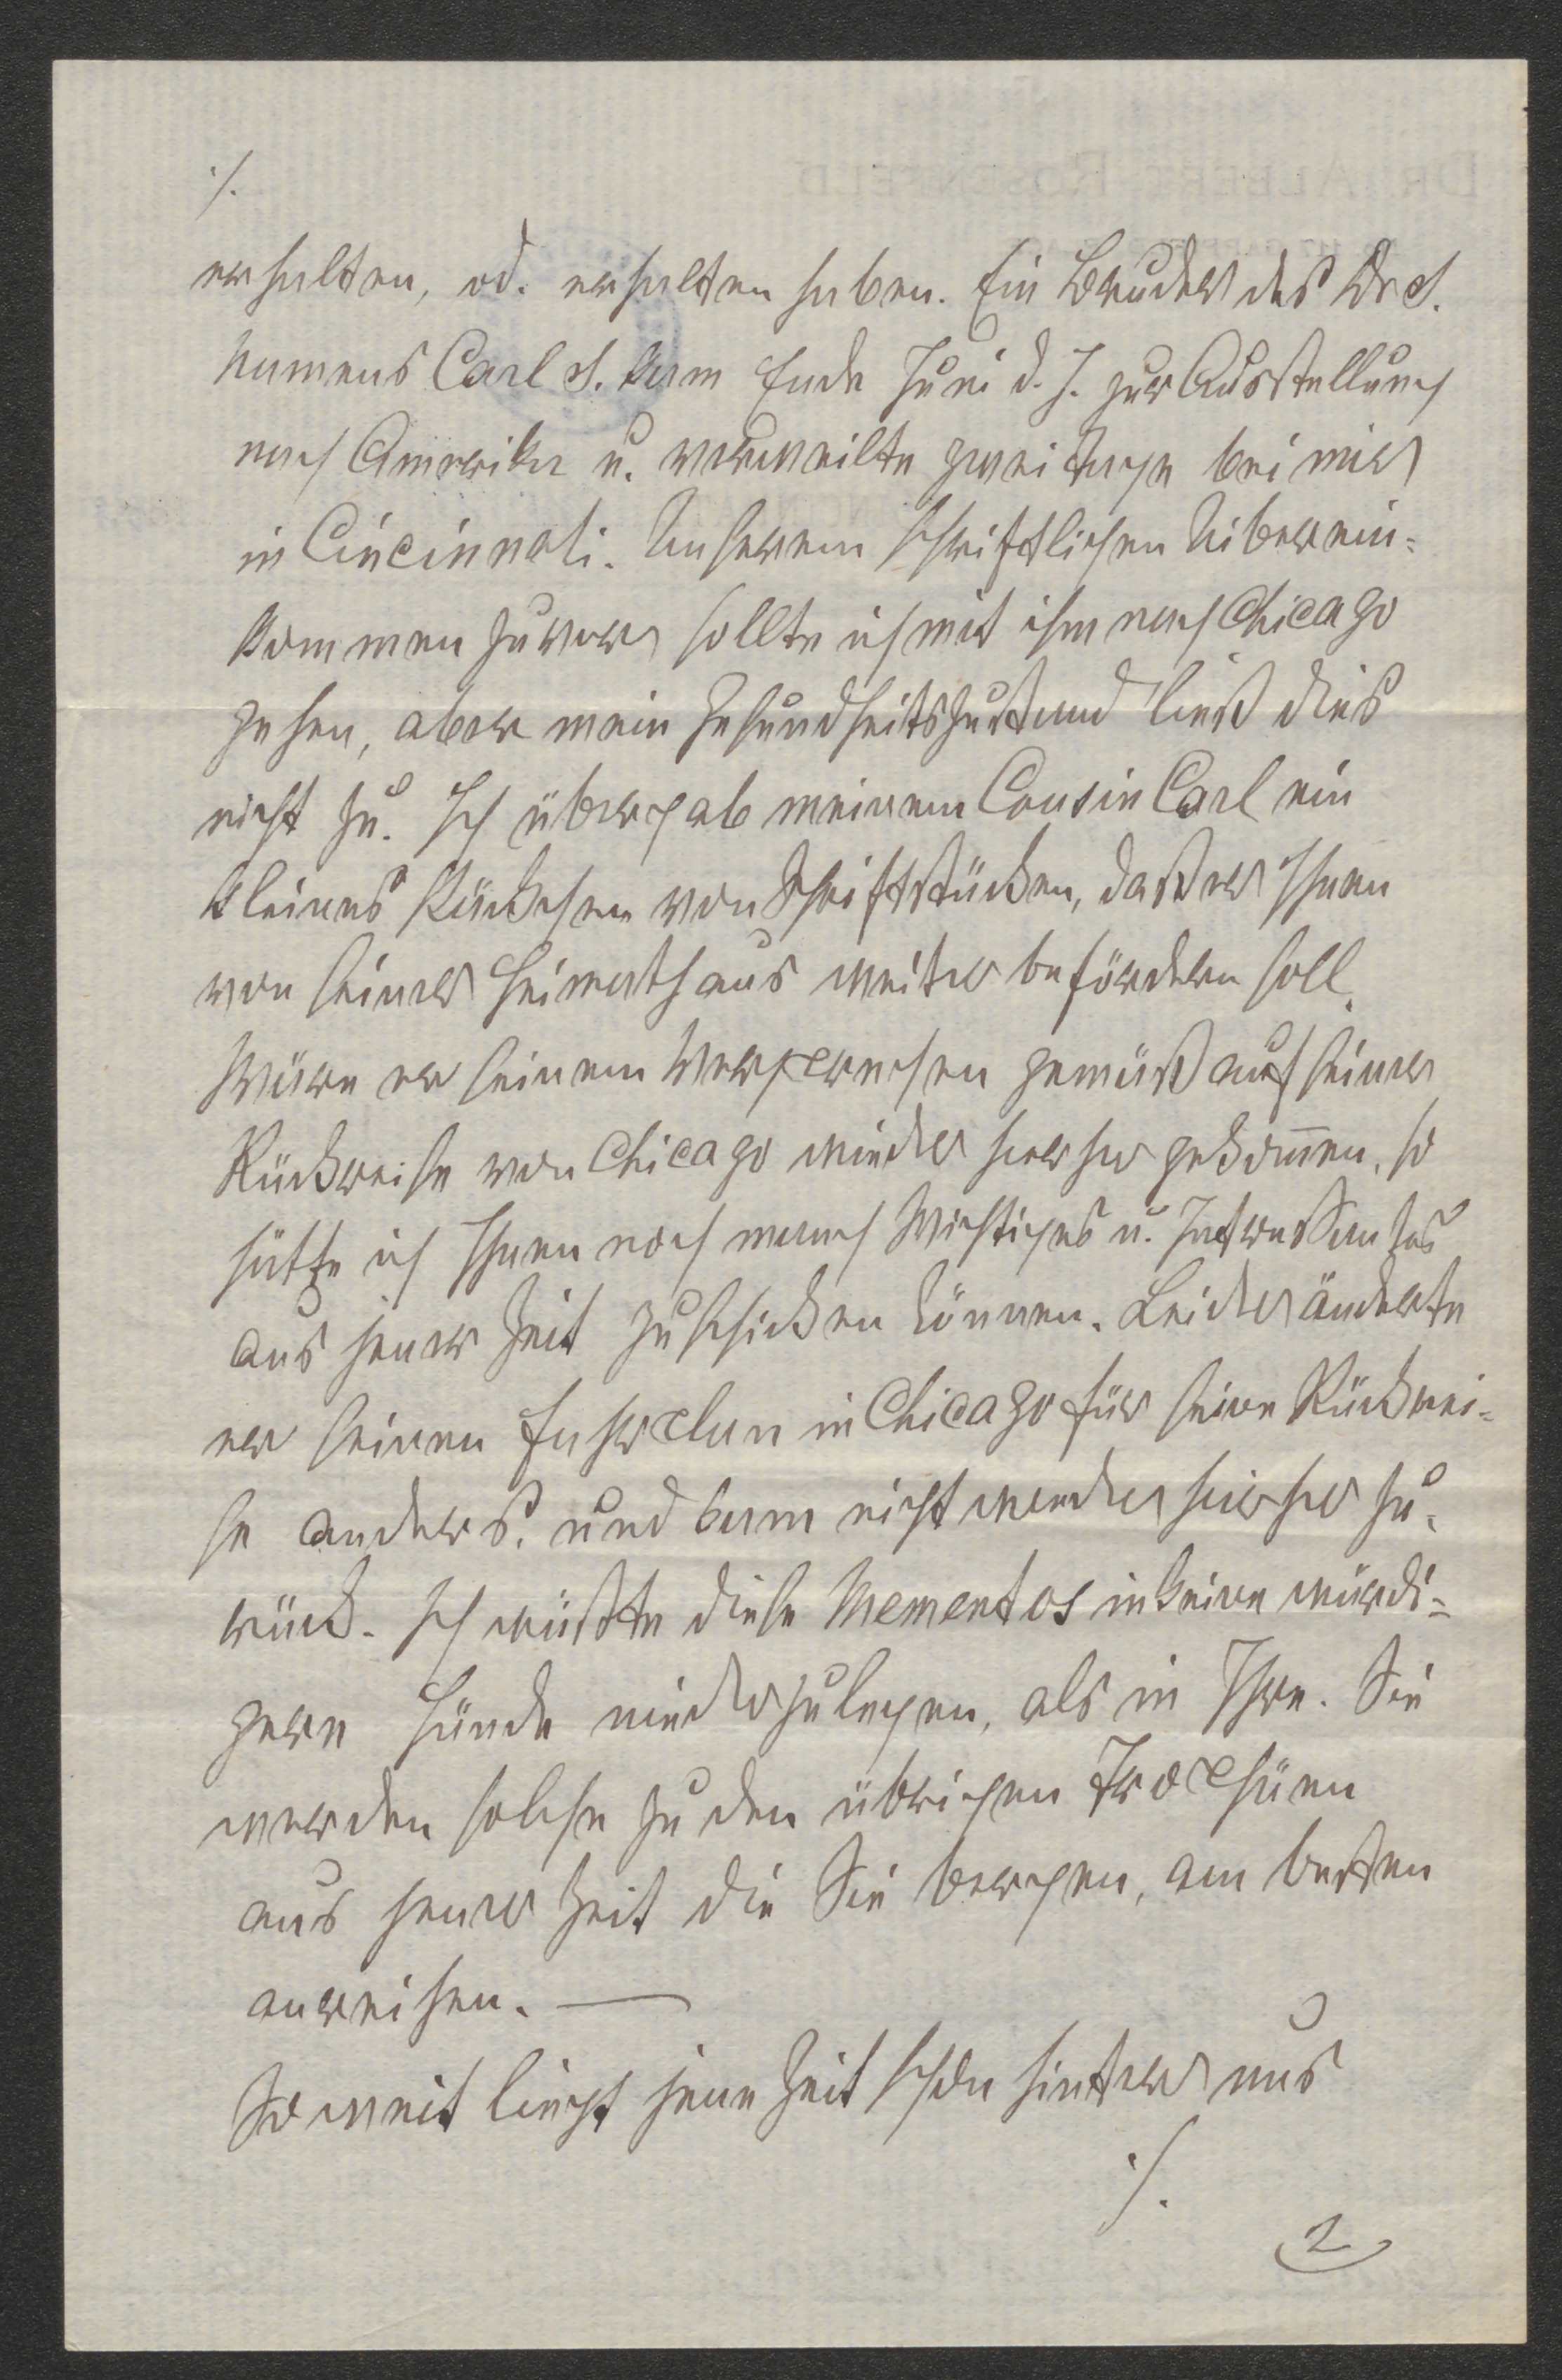 ./.
erhalten, od. erhalten haben. Ein Bruder des Dr S.
Namens Carl S. kam Ende Juni d. J. zur Ausstellung
nach Amerika u. verweilte zwei Tage bei mir
in Cincinnati. Unserem schriftlichen Uiberein=
kommen zuvor sollte ich mit ihm nach Chicago
gehen, aber mein Gesundheitszustand ließ dies
nicht zu. Ich übergab meinem Cousin Carl ein
kleines Päckchen von Schriftstücken, daß er Ihnen
von seiner Heimath aus weiter befördern soll.
Wäre er seinem Versprechen gemäß auf seiner
Rückreise von Chicago wieder hierher gekom̅en, so
hätte ich Ihnen noch manch Wichtiges u. Interessantes
aus jener Zeit zuschicken können. Leider änderte
er seinen Fahrplan in Chicago für seine Rückrei=
se anders. und kam nicht wieder hierher zu=
rück. Ich wüßte diese Mementos in keine würdi=
gere Hände niederzulegen, als in Ihre. Sie
werden solche zu den übrigen Trophäen
aus jener Zeit die Sie bergen, am besten
anreihen. —
So weit liegt jene Zeit schon hinter uns
./.
2